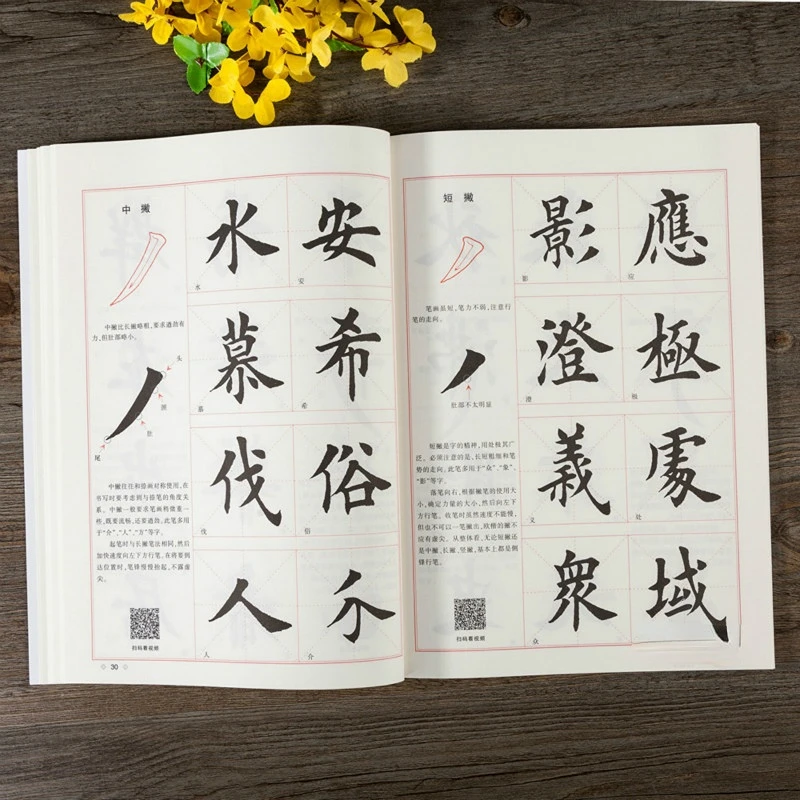 中 撇
中撇比长撇略粗，要求遒劲有
力，但肚部略小。
头
腰
肚
尾
中撇往往和捺画对称使用，在
书写时要考虑到与捺笔的角度关
系。中撇一般要求笔画稍微重一
些，既要流畅，还要遒劲，此笔多用
于“介”、“人”、“方”等字。
起笔时与长撇笔法相同，然后
加快速度向左下方行笔，在将要到
达位置时，笔锋慢慢抬起，不露虚
尖。
扫码看视频
水 安
水 安
慕 希
慕 希
伐 俗
伐 俗
人 介
人 介
30
短 撇
笔画虽短，笔力不弱，注意行
笔的走向。
肚部不太明显
短撇是字的精神，用处极其广
泛。必须注意的是，长短粗细和笔
势的走向。此笔多用于“众”、“象”、
“影”等字。
落笔向右，根据撇笔的使用大
小，确定力量的大小，然后向左下
方行笔。收笔时虽然速度不能慢，
但也不可以一笔撇出，欧楷的撇不
应有虚尖。从整体看，无论短撇还
是中撇、长撇、竖撇，基本上都是侧
锋行笔。
扫码看视频
影 應
影 应
澄 極
澄 极
義 處
义 处
衆 域
众